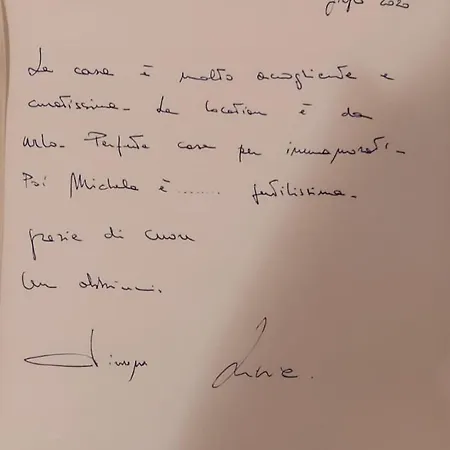 giugno 2020
La casa è molto accogliente e
curatissima. La location è da
urlo. Perfetta casa per innamorati.
Poi Michela è ........ gentilissima.
grazie di cuore
Un abbraccio.